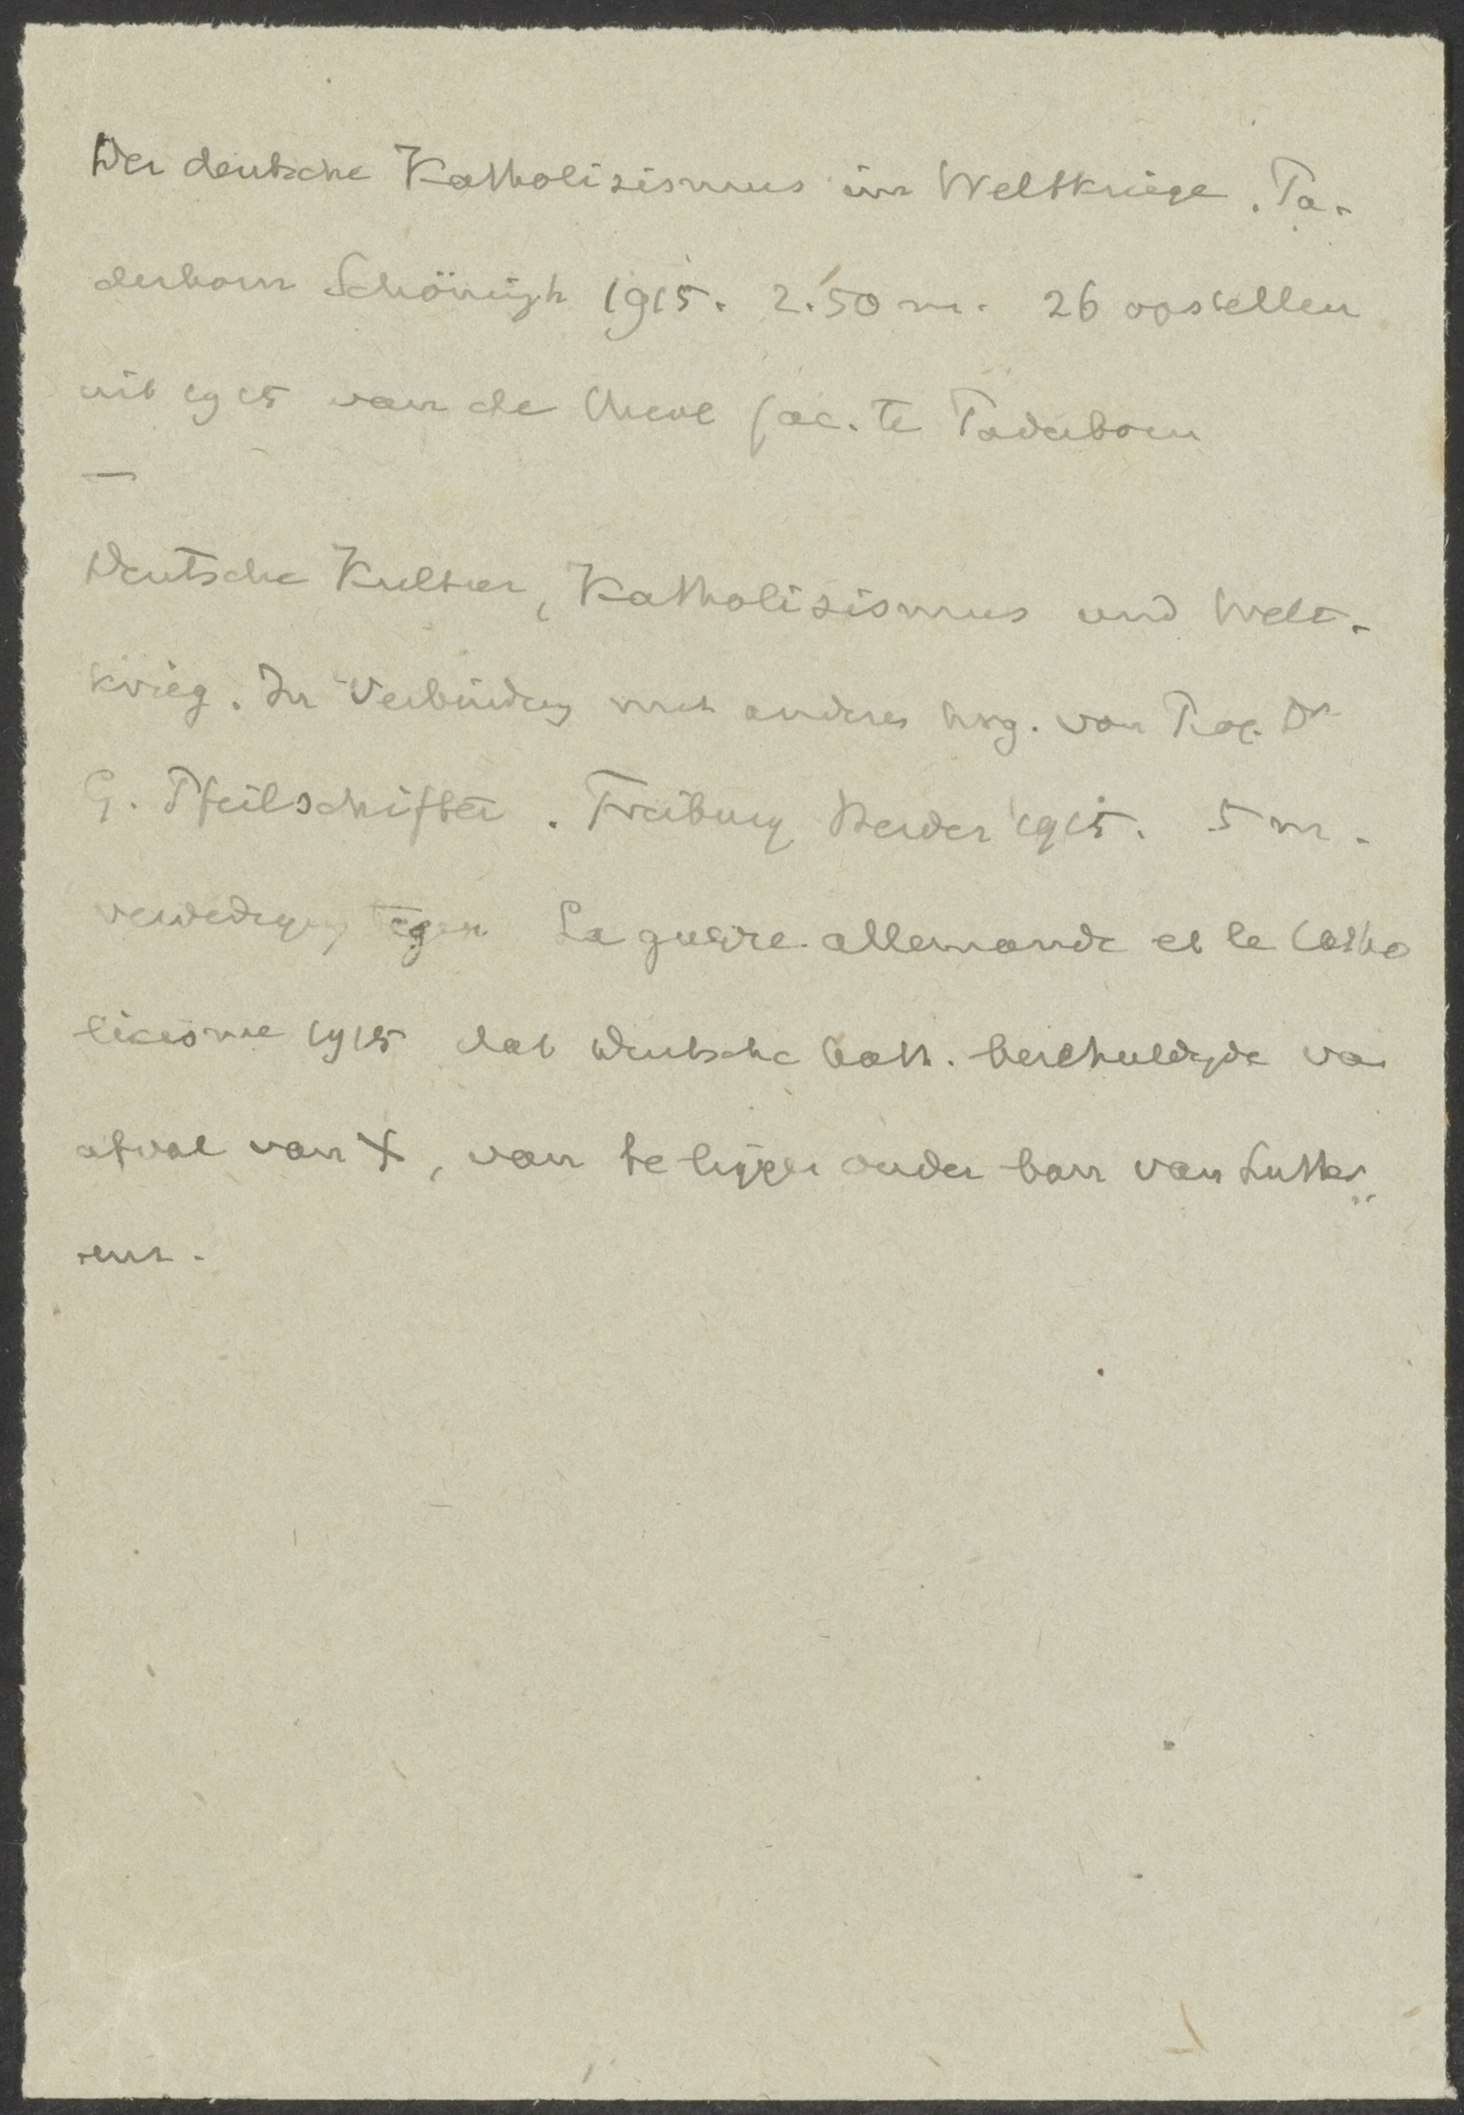 Der deutsche Katholizismus im Weltkriege. Pa-
derborn Schöningh 1915. 2.50 m. 26 opstellen
uit 1915 van de theol fac. te Paderborn
—
Deutsche Kultur, Katholizismus und Welt-
krieg. In Verbindung mit anderen hrsg. von Prof. Dr
G. Pfeilschifter. Freiburg Herder 1915. 5 m.
verdediging tegen La guerre allemande et le Catho
licisme 1915 dat deutsche Cath. beschuldigde van
afval van X, van te liggen onder ban van Luther..
ent.